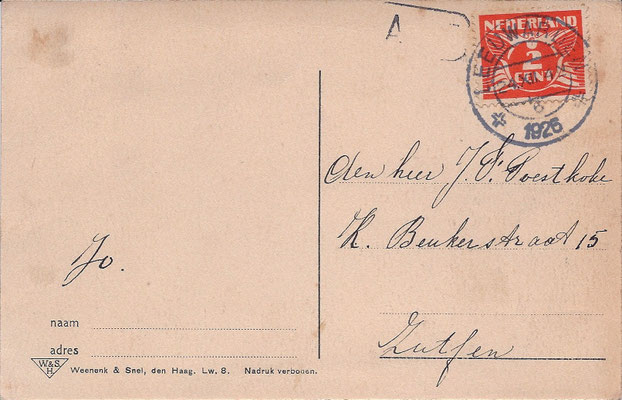 A
NEDERLAND
2
CENT
LEEUWARDEN
1926
den heer J. S. Poestkoke
K. Beukerstraat 15
Zutfen
Jo.
naam
adres
W&S
H
Weenenk & Snel, den Haag. Lw. 8. Nadruk verboden.